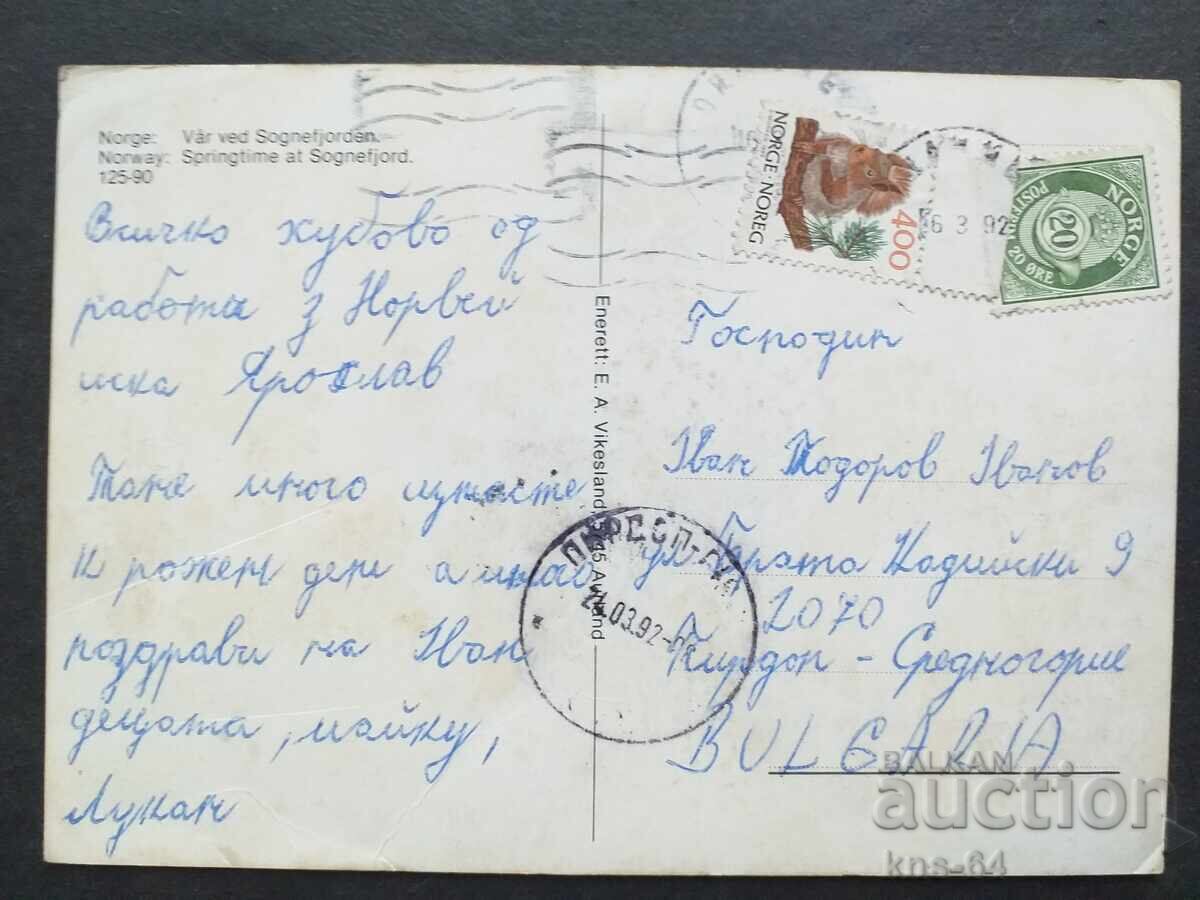 Norge: Vår ved Sognefjorden.
Norway: Springtime at Sognefjord.
125-90
Всичко хубаво од
работи з Норвей
иска Ярослав
Тоне много
рожен ден а
поздрави на Іван
децата, майку,
Лукан
Enerett: E. A. Vikesland,
NORGE·NOREG
400
6 3 92
NORGE
20
20 ØRE
Господин
Іван Тодоров Іванов
ул Братя Кадийски 9
2070
Пирдоп - Средногорие
BULGARIA
03.92
BALKAN
auction
kns-64